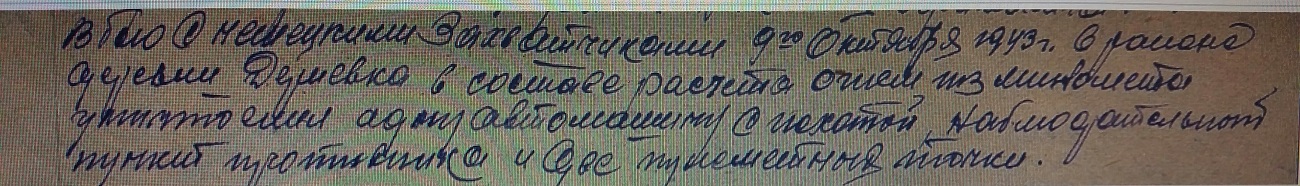 В бою с немецкими захватчиками 9го Октября 1943 г. в районе
деревни Дешевка в составе расчета огнем из миномета
уничтожил одну автомашину с пехотой, наблюдательный
пункт противника и две пулеметные точки.